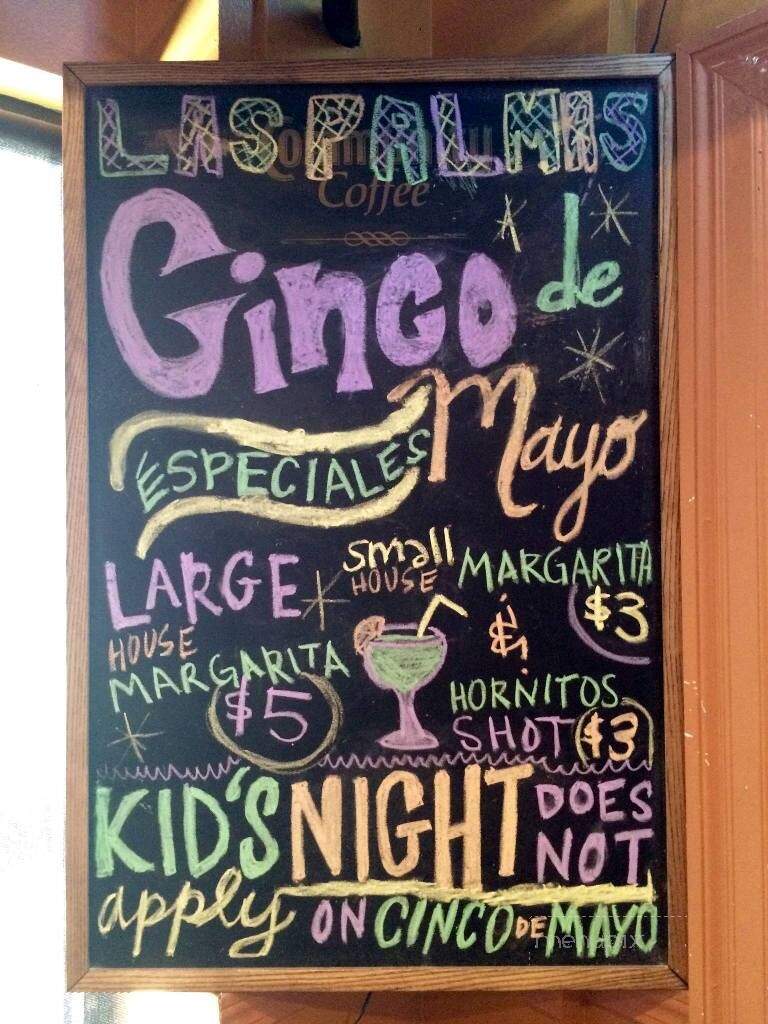 LAS PALMAS
Community
Coffee
Cinco de
Mayo
ESPECIALES
LARGE
HOUSE
MARGARITA
$5
small
HOUSE
MARGARITA
$3
&
HORNITOS
SHOT $3
KID'S NIGHT DOES
NOT
apply ON CINCO DE MAYO
menupix